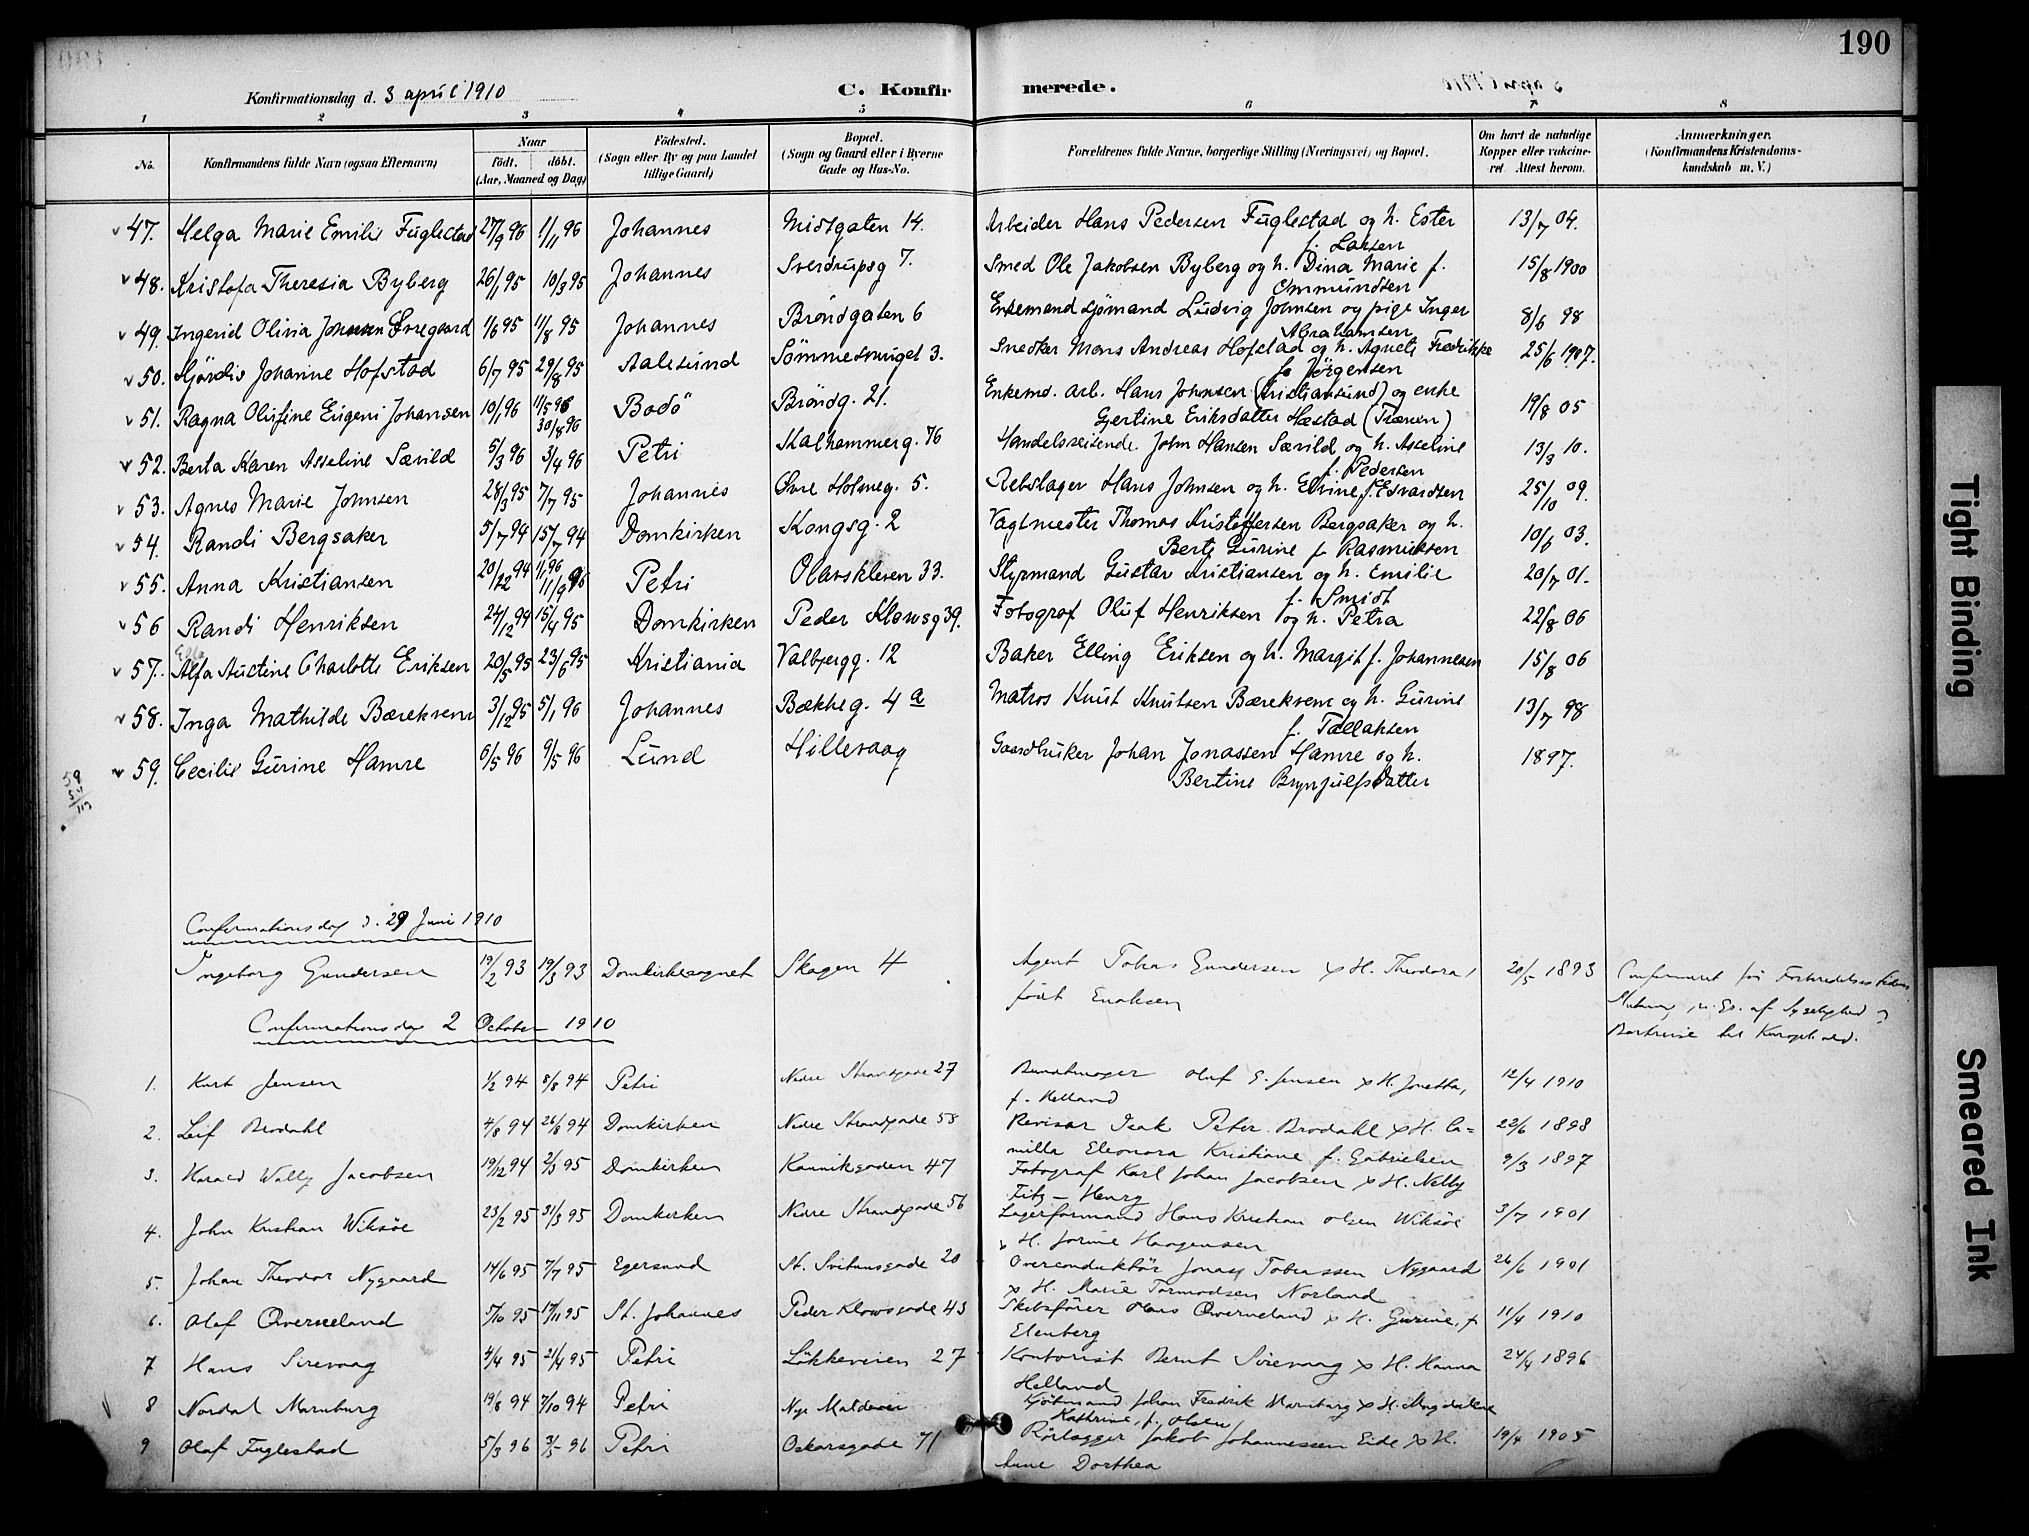 190
Konfirmationsdag d. 3 april 1910 C. Konfir merede.
1 2 3 4 5 6 7 8
No. Konfirmandens fulde Navn (ogsaa Efternavn) Naar födt. döbt. (Aar, Maaned og Dag) Födested. (Sogn eller By og paa Landet tillige Gaard) Bopæl. (Sogn og Gaard eller i Byerne Gade og Hus-No. Forældrenes fulde Navne, borgerlige Stilling (Næringsvei) og Bopæl. Om havt de naturlige Kopper eller vakcineret Attest herom. Anmærkninger. (Konfirmandens Kristendomskundskab m. V.)
47. Helga Marie Emilie Fuglestad 27/9 96 1/11 96 Johannes Midtgaten 14. Arbeider Hans Pedersen Fuglestad og h. Ester 13/7 04.
f. Larsen
48. Kristofa Theresia Byberg 26/1 95 10/3 95 Johannes Sverdrupsg 7. Smed Ole Jakobsen Byberg og h. Dina Marie f. 15/8 1900
Ommundsen
49. Ingerid Olivia 1/6 95 11/8 95 Johannes Bröndgaten 6 Enkemand sjömand Ludvig Johnsen og pige Inger 8/6 98
Abrahamsen
50. Hjördis Johanne Hofstad 6/7 95 29/8 95 Aalesund Sömmesmuget 3. Snedker Mons Andreas Hofstad og h. Agnete Fredrikke 25/6 1907.
f. Jörgensen
51. Ragna Olufine Eugeni Johansen 10/1 96 11/5 96 Bodö Bröndg. 21. Enkemd. arb. Hans Johnsen (Kristiansund) og enke 19/8 05
30/8 96 Gjertine Eriksdatter Hæstad (Trænen)
52. Berta Karen Asseline Særild 5/3 96 3/4 96 Petri Kalhammerg. 76 Handelsreisende John Hansen Særild og h. Asseline 13/3 10.
f. Pedersen
53. Agnes Marie Johnsen 28/3 95 7/7 95 Johannes Øvre Holmeg. 5. Rebslager Hans Johnsen og h. Elvine f. Edvardsen 25/10 09.
54. Randi Bergsaker 5/7 94 15/7 94 Domkirken Kongsg. 2 Vagtmester Thomas Kristoffersen Bergsaker og h. 10/6 03.
Berte Gurine f. Rasmussen
55. Anna Kristiansen 94 11/9 Petri Olavskleven 33. Styrmand Gustav Kristiansen og h. Emilie 20/7 01.
f. Smidt
56 Randi Henriksen 24/12 94 15/4 95 Domkirken Peder Klowsg 39. Fotograf Oluf Henriksen og h. Petra 22/8 06
57. Alfa Austine Charlotte Eriksen 20/5 95 23/6 95 Kristiania Valbjergg. 12 Baker Elling Eriksen og h. Margit f. Johannesen 15/8 06
58. Inga Mathilde Bærekvem 3/12 95 5/1 96 Johannes Bækheg. 4 a Matros Knut Knutsen Bærekvem og h. Gurine 13/7 98
f. Tallaksen
59. Cecilie Gurine Hamre 6/5 96 9/5 96 Lund Hillevaag Gaardbruker Johan Jonassen Hamre og h. 1897.
Bertine Brynjulfsdatter
Confirmationsdag d. 29 Juni 1910
Ingeborg Gundersen 19/2 93 19/3 93 Domkirkesognet Skagen 4 Agent Tobias Gundersen & H. Theodora, 20/5 1893 Confirmeret för Forberedelsestidens
født Enoksen af Sygelighed
Confirmationsdag 2 October 1910 Bortreise til Kurophold.
1. Kurt Jensen 1/2 94 8/8 94 Petri Nedre Strandgade 27 Buntmager Oluf G. Jensen & H. Jonetta, 12/4 1910
f. Helland
2. Leif Brodahl 4/8 94 26/8 94 Domkirken Nedre Strandgade 58 Revisor Isak Peter Brodahl & H. Ca= 22/6 1898
milla Eleonora Kristiane f. Gabrielsen
3. Harald Wally Jacobsen 19/12 94 2/3 95 Domkirken Kannikgaden 47 Fotograf Karl Johan Jacobsen & H. Nelly 9/3 1897
Fitz-Henry
4. John Kristian Wiksöe 23/2 95 31/3 95 Domkirken Nedre Strandgade 56 Lagerformand Hans Kristian Olsen Wiksöe 3/7 1901
& H. Jorine Haagensen
5. Johan Theodor Nygaard 14/6 95 7/7 95 Egersund St. Svitunsgade 20 Overconduktör Jonas Tobiassen Nygaard 26/6 1901
& H. Marie Tormodsen Norland
6. Olaf Qverneland 5/10 95 17/11 95 St. Johannes Peder Klowsgade 43 Skibsfører Hans Qverneland & H. Gurine, f 11/4 1910
Elenberg
7 Hans Sirevaag 4/4 95 21/4 95 Petri Lökkeveien 27 Kontorist Bernt Sirevaag & H. Hanna 24/4 1896
Helland
8 Nordal Marnburg 19/6 94 7/10 94 Petri Nye Kjöbmand Johan Fredrik Marnburg & H. Magdalene
Kathrine, f. Olsen
9 Olaf Fuglestad 5/3 96 3/5 96 Petri Oskarsgade 71 Rörlægger Jakob Johannessen Eide & H. 19/4 1905
Anne Dorthea
Tight Binding
Smeared Ink